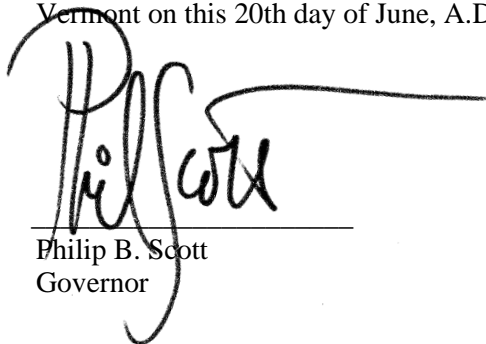 Vermont on this 20th day of June, A.D
Phil Scott
Philip B. Scott
Governor